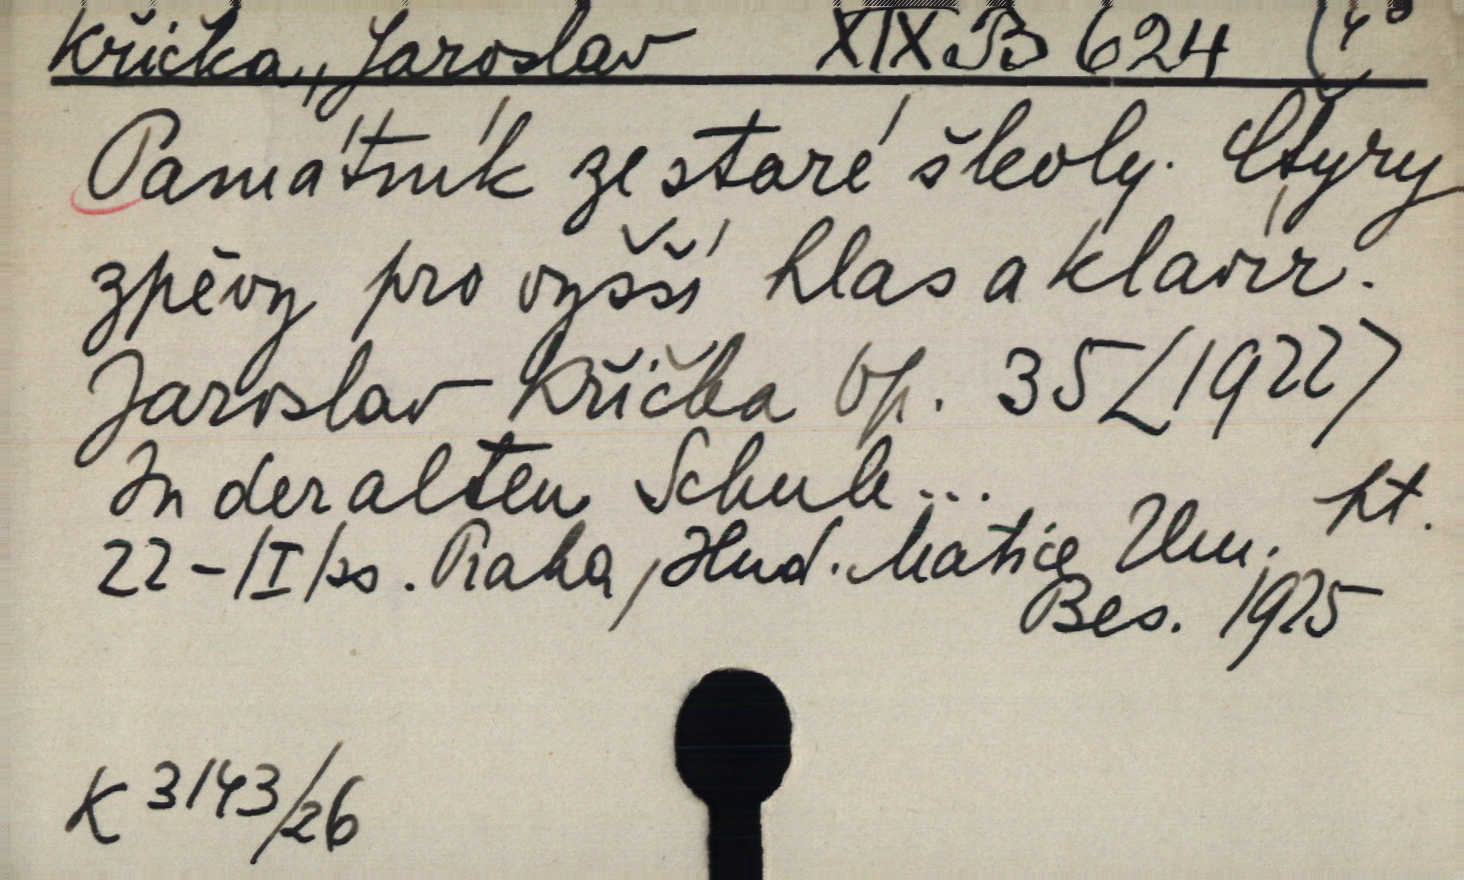 Křička, Jaroslav XIX B 624 (4°
Památník ze staré školy. Čtyry
zpěvy pro vyšší hlas a klavír.
Jaroslav Křička Op. 35 <1922>
In der alten Schule ... ht.
22 - /I/ ss. Praha, Hud. Matice Um.
Bes. 1925
K 3143/26